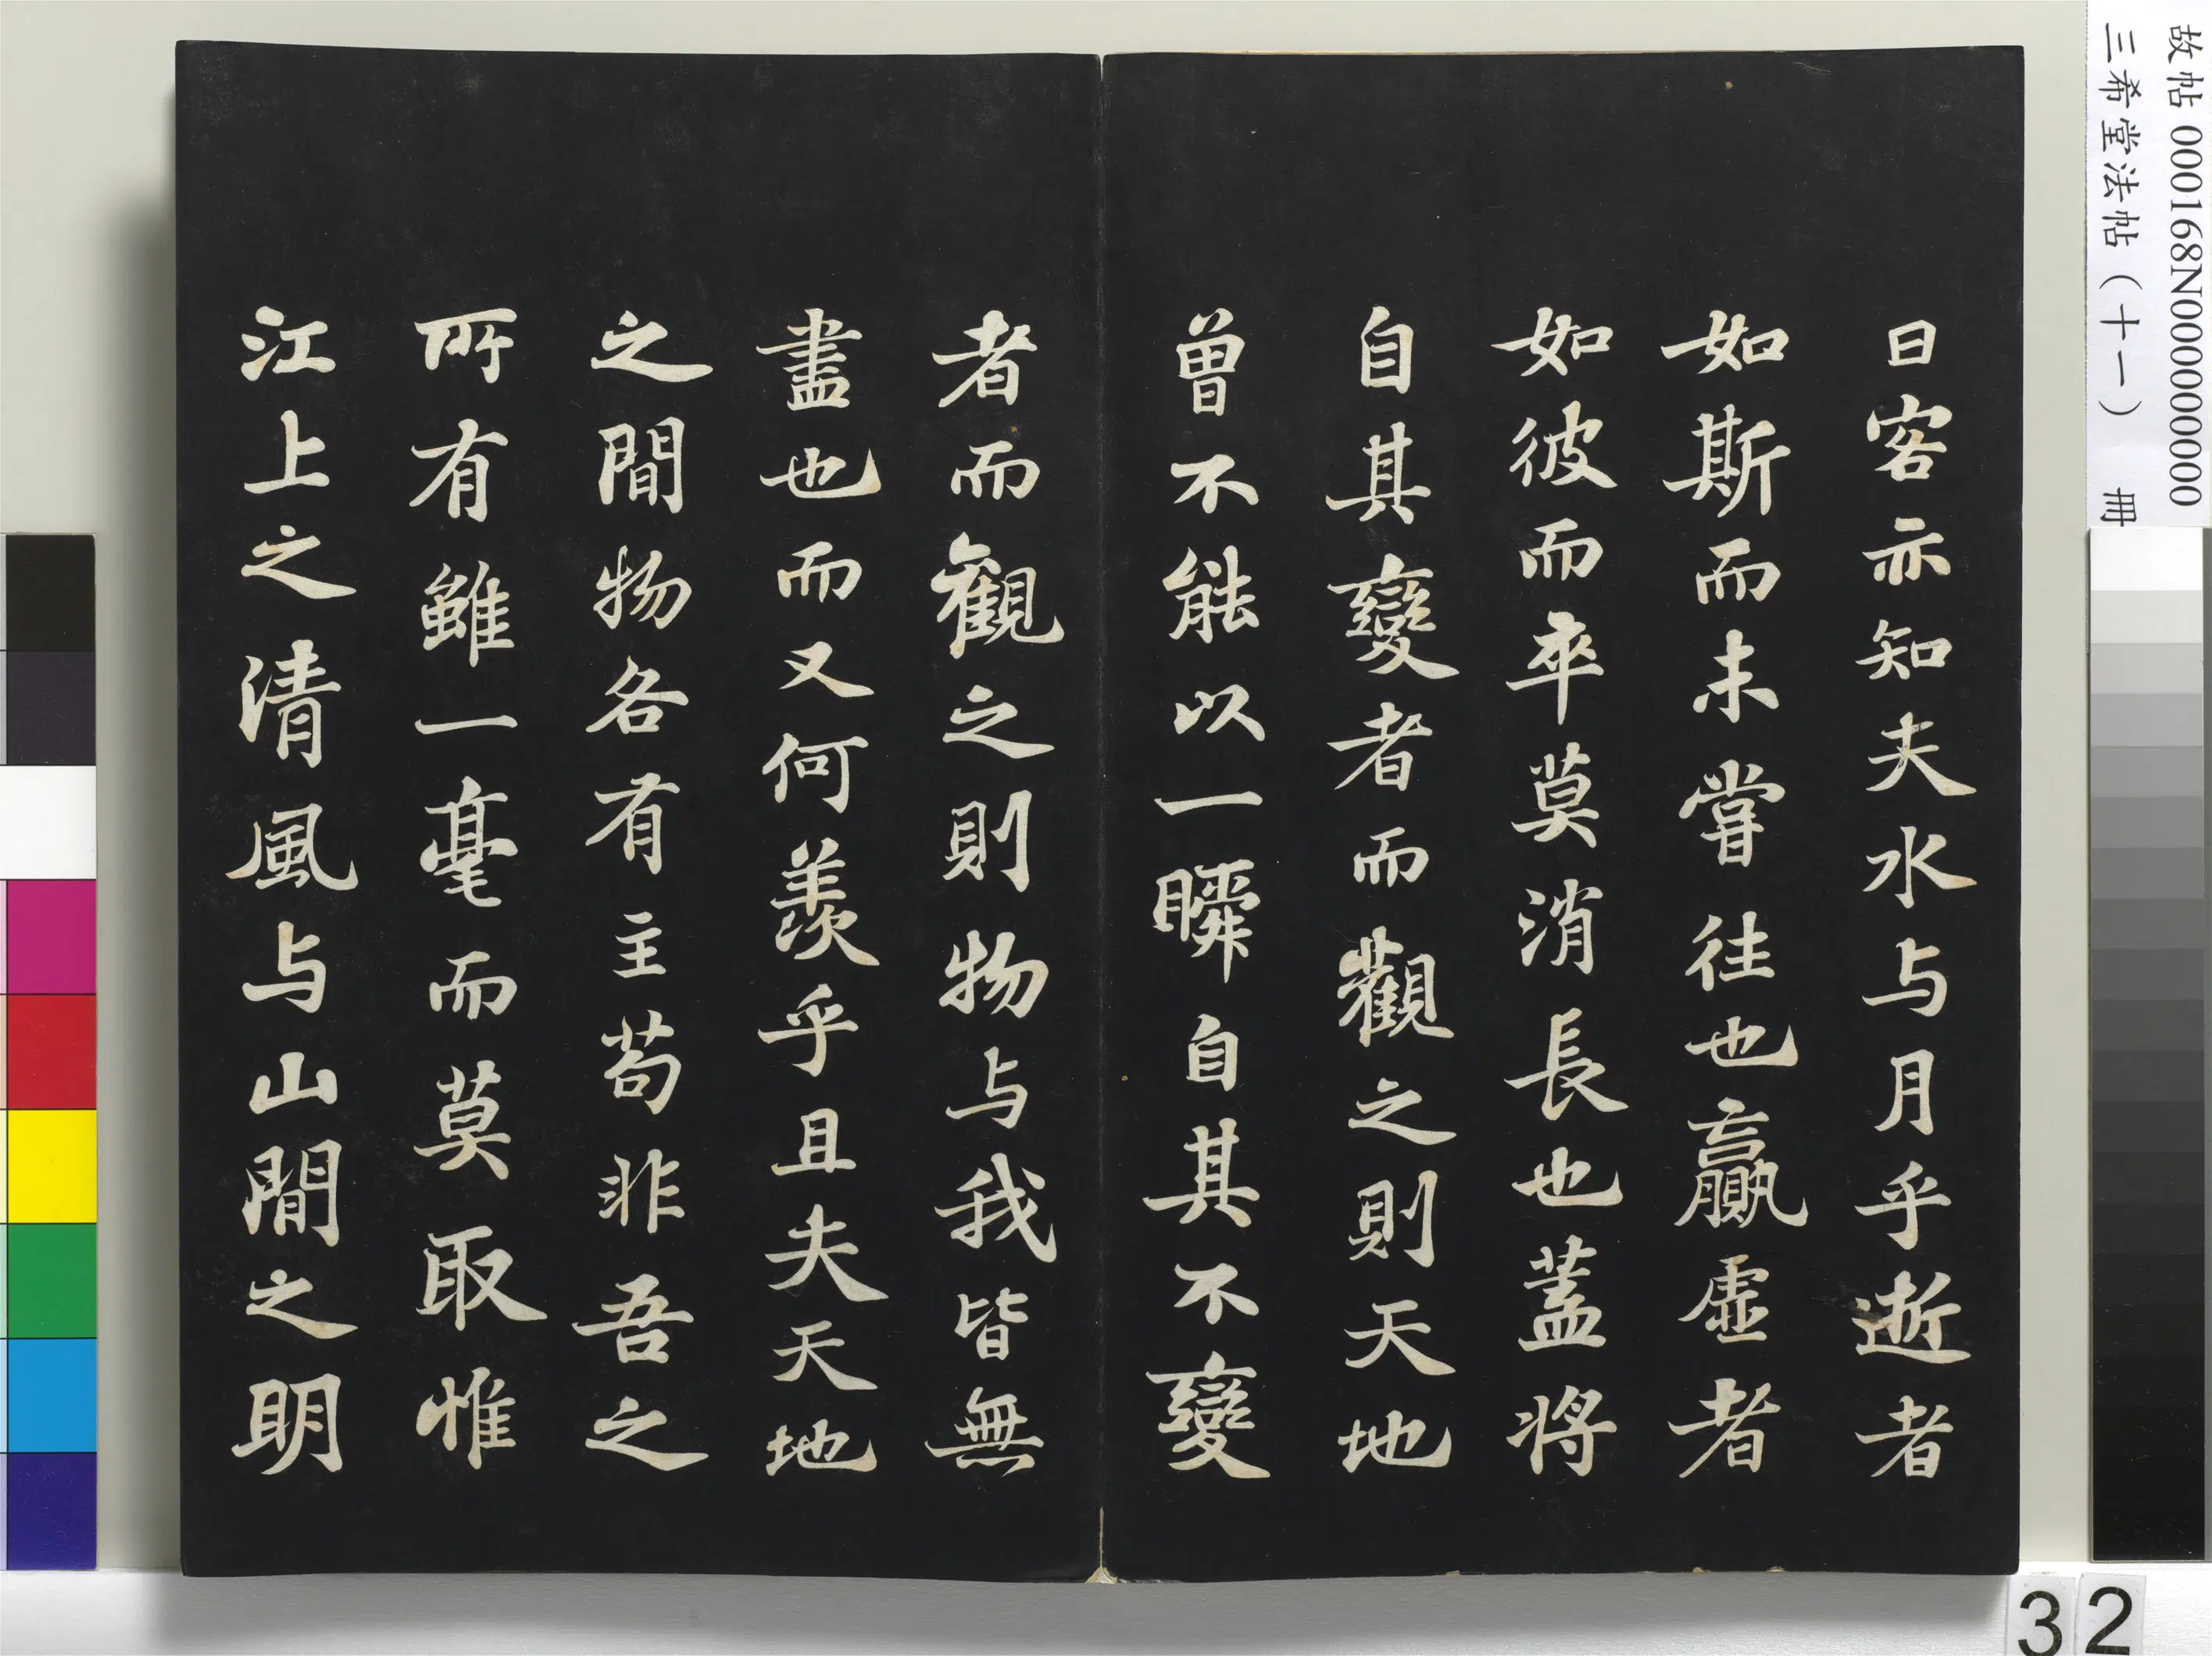 故帖 000168N000000000
三希堂法帖（十一） 冊
曰客亦知夫水与月乎逝者
如斯而未甞往也贏虛者
如彼而卒莫消長也蓋将
自其變者而觀之則天地
曾不能以一瞬自其不變
者而觀之則物与我皆無
盡也而又何羨乎且夫天地
之間物各有主苟非吾之
所有雖一毫而莫取惟
江上之清風与山間之明
32